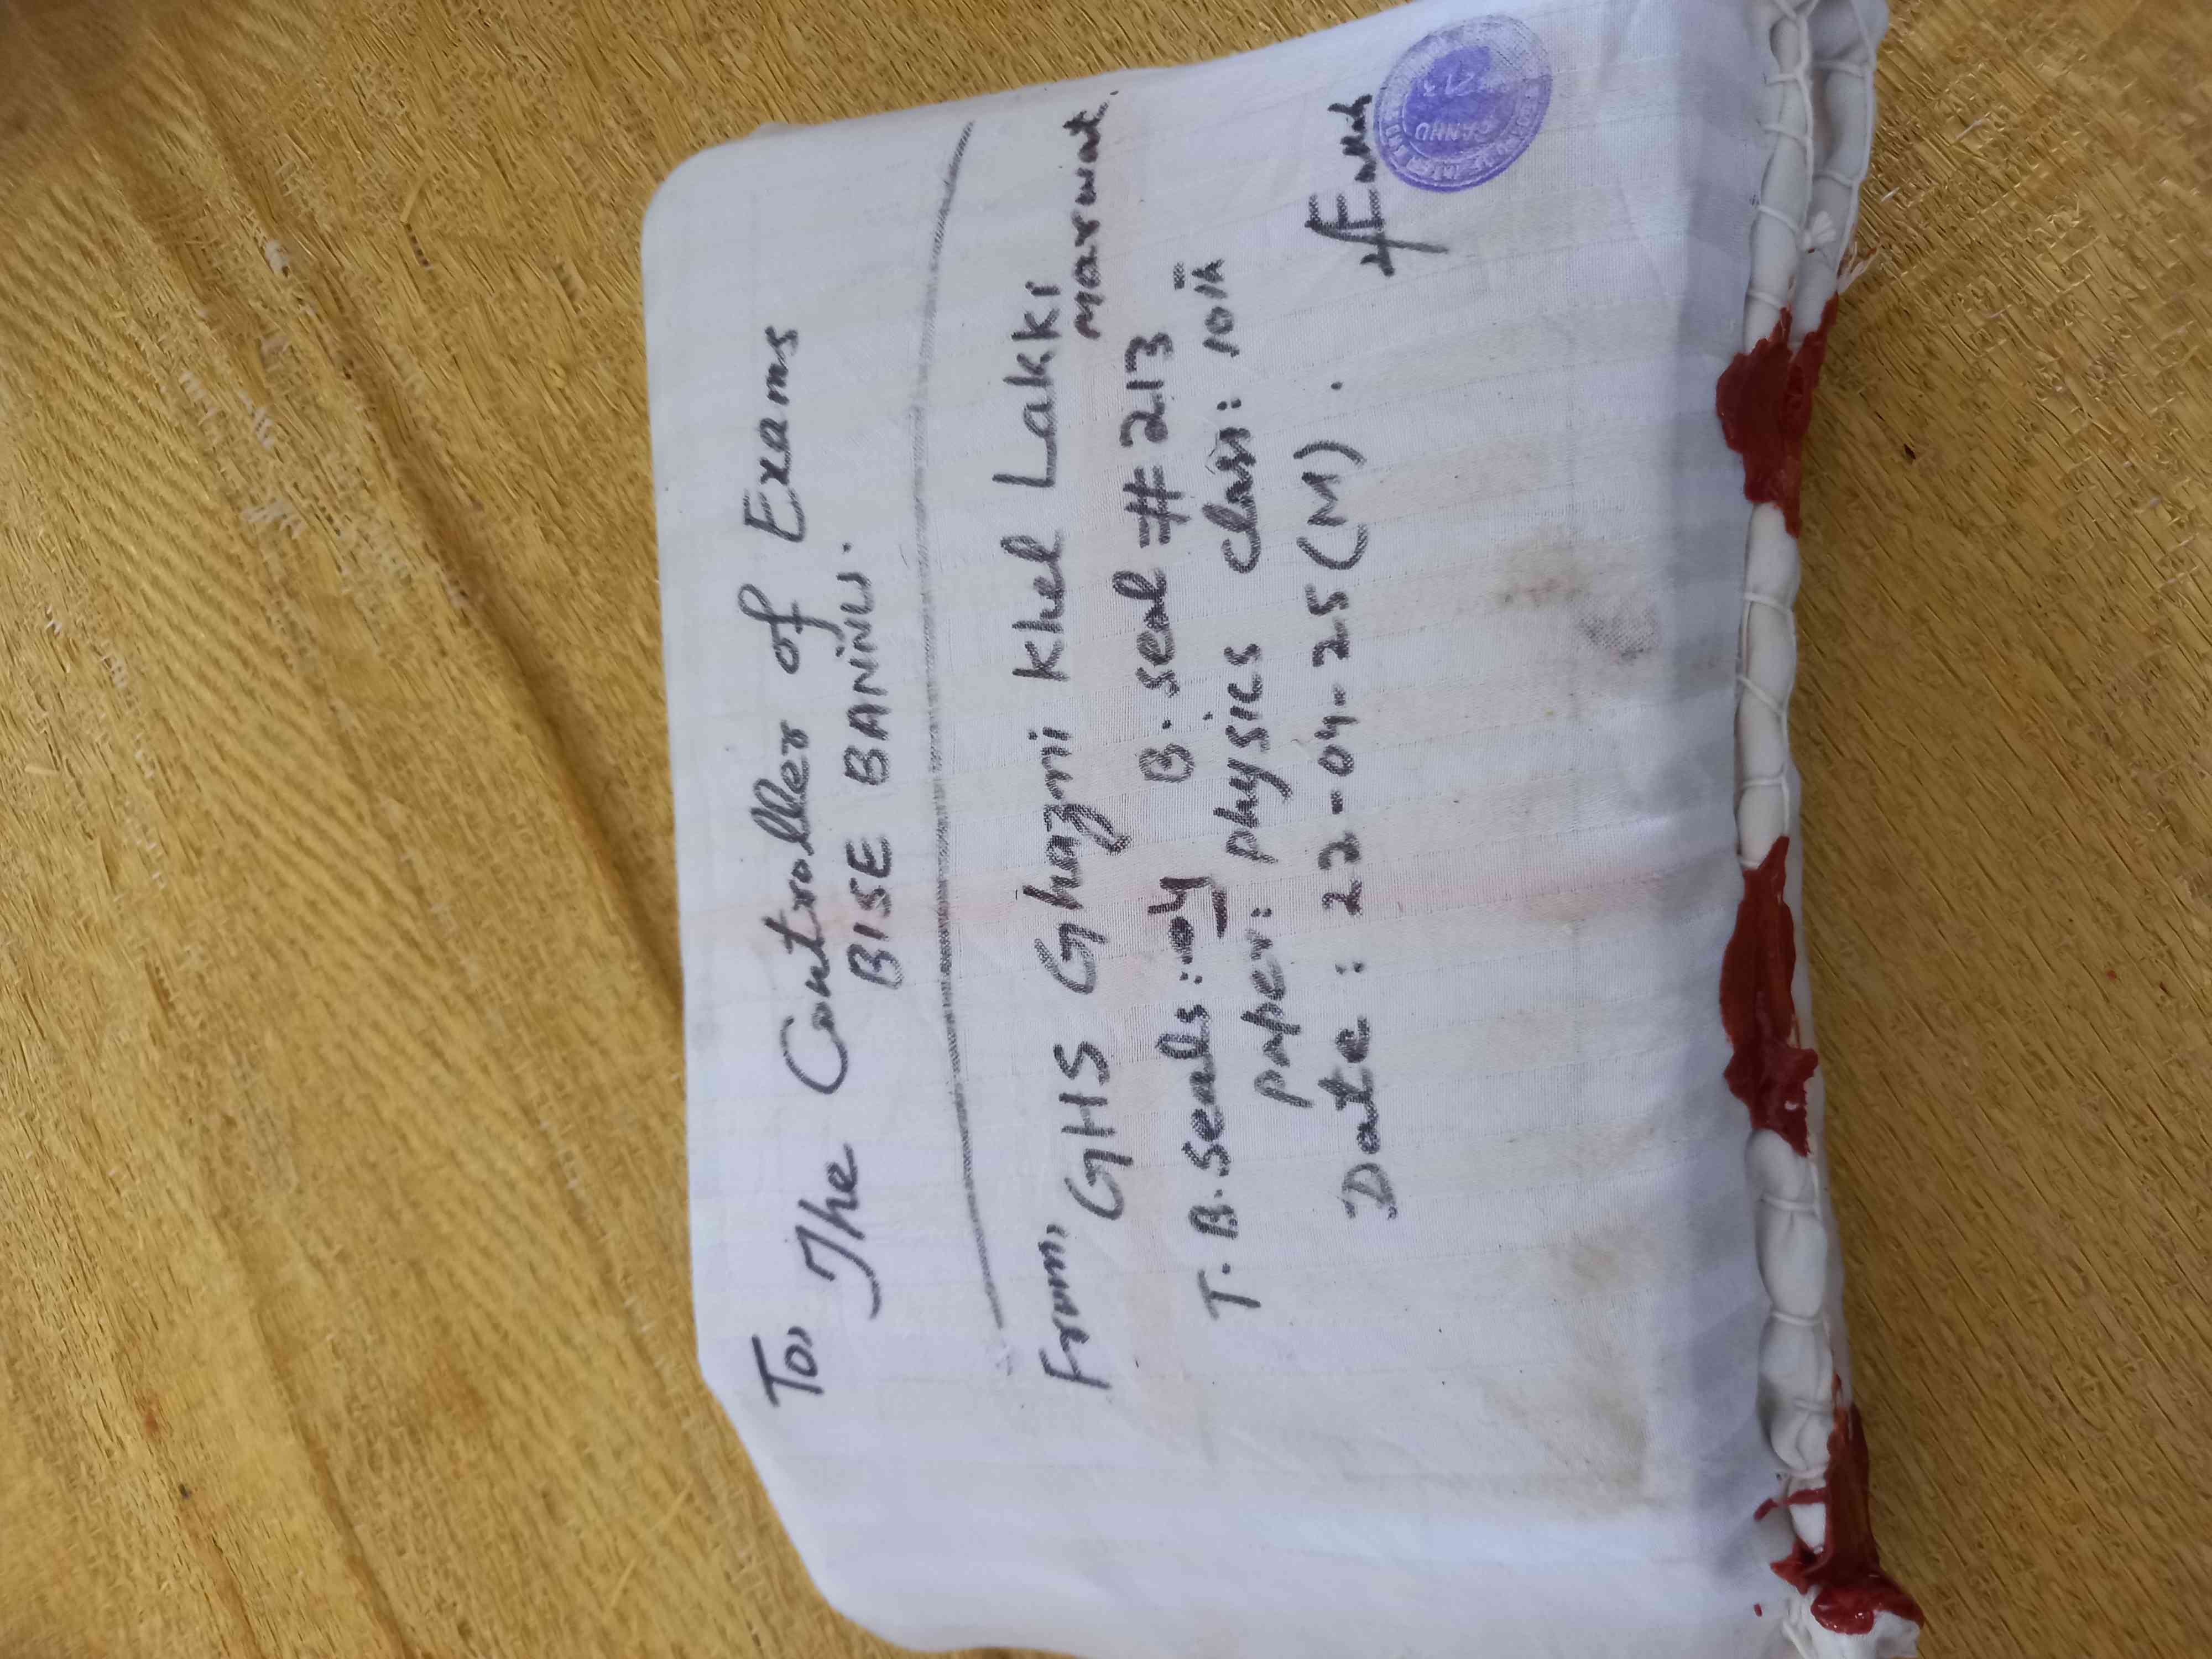 To,
The Controller of Exams
BISE BANNU.
From,
GHS Ghazni Khel Lakki
Marwat.
T.B.Seals: 04 B.seal # 213
paper: physics class: 10th
Date: 22-04-25(M).
BANNU
213